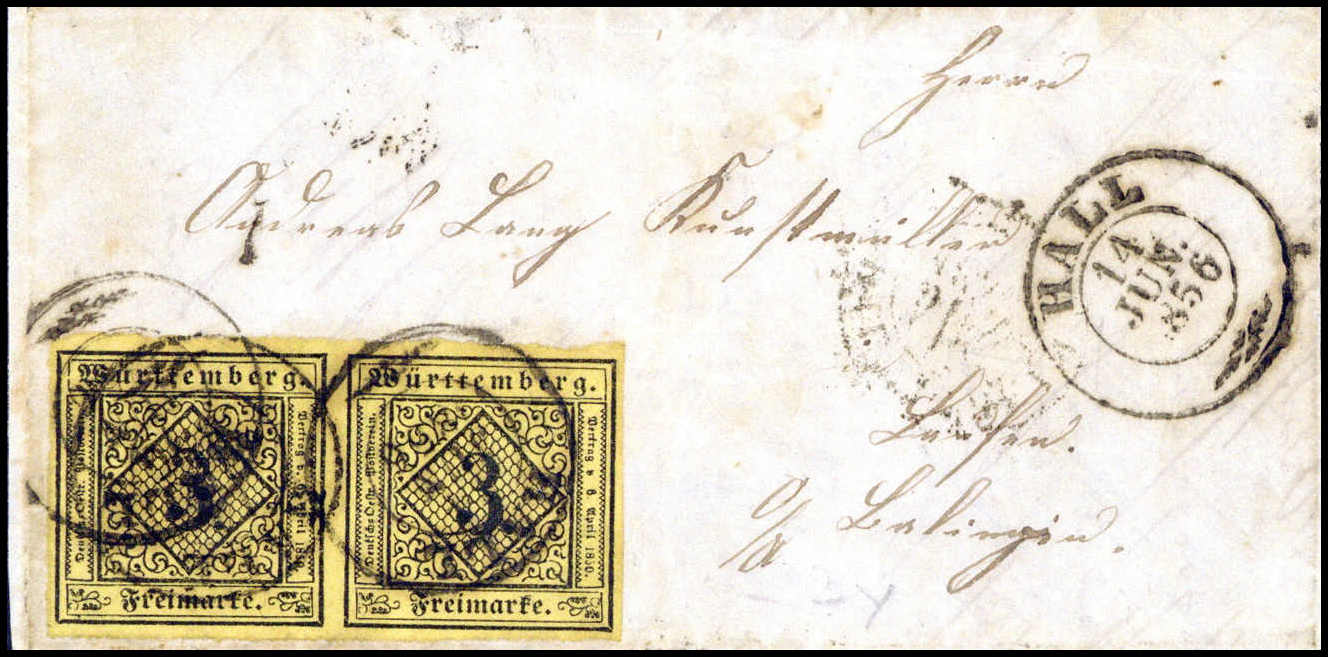 Herrn
Andreas Lang Kunstmüller
HALL
14
JUN.
856
Württemberg.
Deutsch-Oestr. Postverein.
Vertrag v. 6 April 1850.
3
Freimarke.
Württemberg.
Deutsch-Oestr. Postverein.
Vertrag v. 6 April 1850.
3
Freimarke.
Balingen.